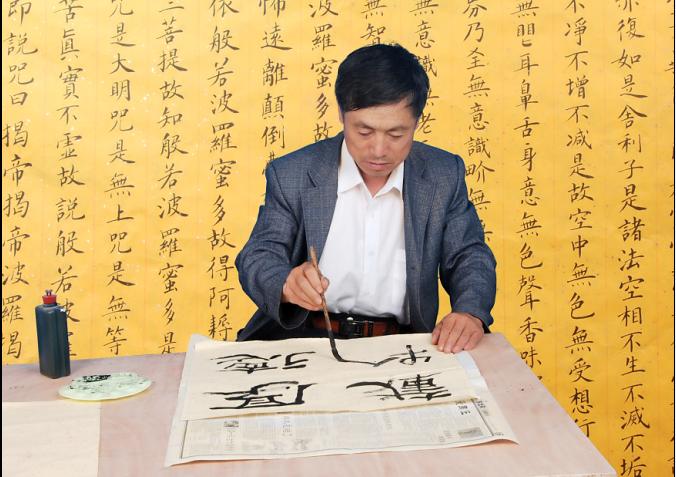 亦復如是舍利子是諸法空相不生不滅不垢
不淨不增不减是故空中無色無受想行
無眼耳鼻舌身意無色聲香味
乃至無意識界無
無意識
老
無智
波羅蜜多故
怖遠離顛倒
依般若波羅蜜多故得阿耨
三菩提故知般若波羅蜜多是
咒是大明咒是無上咒是無等
苦真實不虛故說般若波
即說咒曰揭帝揭帝波羅揭
厚德
載